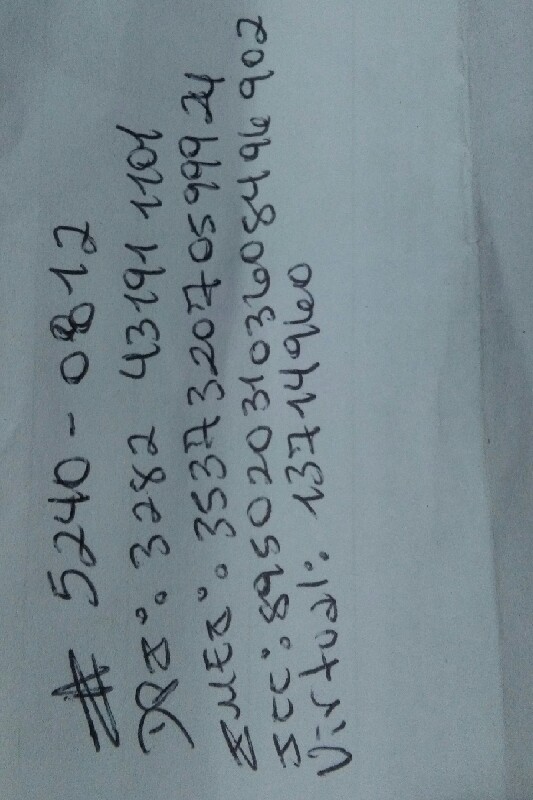 # 5240-0812
DPI: 3282 43191 1101
IMEI: 353732070599924
ICC: 8950203103608496902
Virtual: 13714960